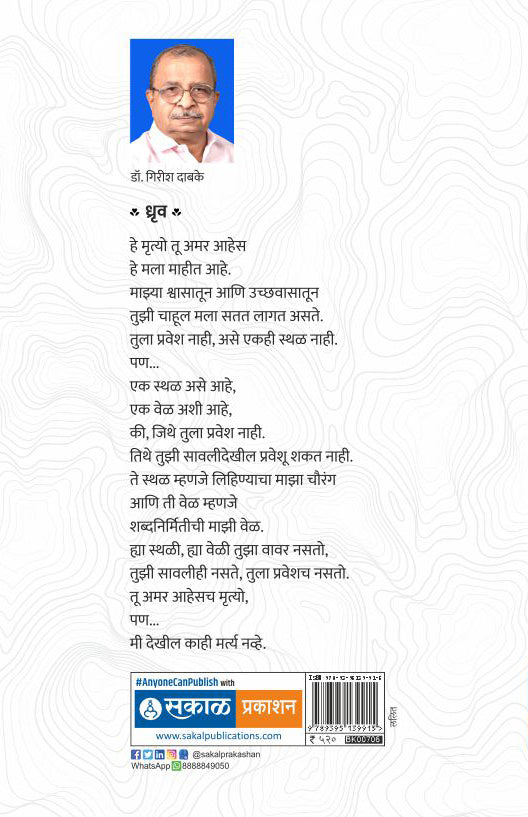 डॉ. गिरीश दाबके
ध्रृव
हे मृत्यो तू अमर आहेस
हे मला माहीत आहे.
माझ्या श्वासातून आणि उच्छवासातून
तुझी चाहूल मला सतत लागत असते.
तुला प्रवेश नाही, असे एकही स्थळ नाही.
पण...
एक स्थळ असे आहे,
एक वेळ अशी आहे,
की, जिथे तुला प्रवेश नाही.
तिथे तुझी सावलीदेखील प्रवेशू शकत नाही.
ते स्थळ म्हणजे लिहिण्याचा माझा चौरंग
आणि ती वेळ म्हणजे
शब्दनिर्मितीची माझी वेळ.
ह्या स्थळी, ह्या वेळी तुझा वावर नसतो,
तुझी सावलीही नसते, तुला प्रवेशच नसतो.
तू अमर आहेसच मृत्यो,
पण...
मी देखील काही मर्त्य नव्हे.
#AnyoneCanPublish with
सकाळ प्रकाशन
www.sakalpublications.com
9789395139915
₹ ५२० BK00706
ललित
@sakalprakashan
WhatsApp 8888849050